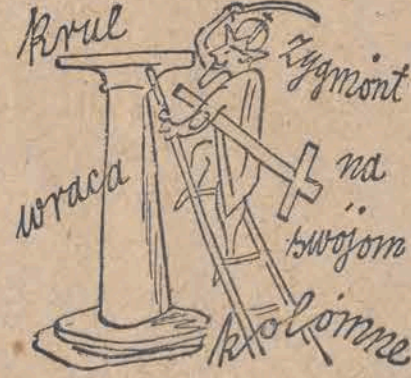 krul
Zygmónt
wraca
na
swójom
kolómne